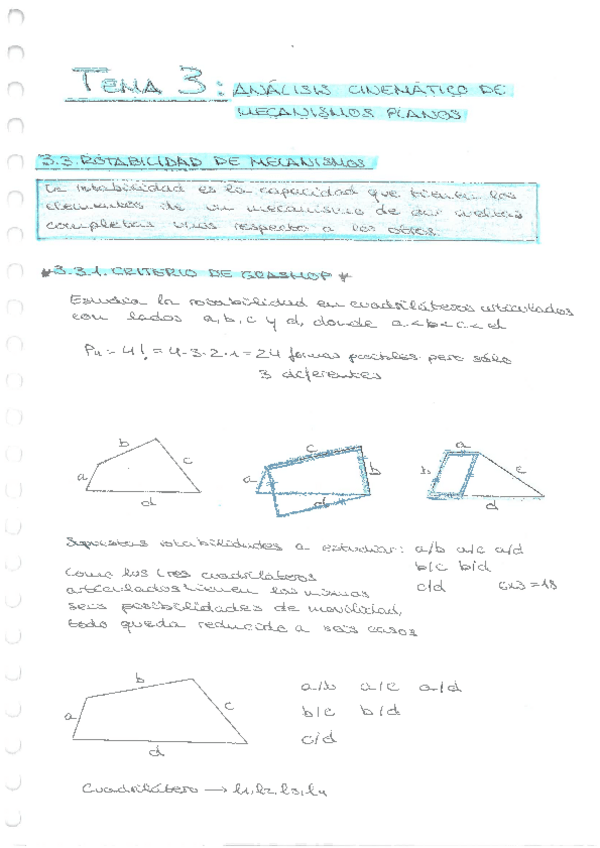 TEMA 3: ANÁLISIS CINEMÁTICO DE
MECANISMOS PLANOS
3.3. ROTABILIDAD DE MECANISMOS
La rotabilidad es la capacidad que tienen los
elementos de un mecanismo de dar vueltas
completas unos respecto a los otros.
*3.3.1. CRITERIO DE GRASHOF *
Estudia la rotabilidad en cuadriláteros articulados
con lados a, b, c y d, donde a<b<c<d
P4 = 4! = 4·3·2·1 = 24 formas posibles pero sólo
3 diferentes
a b c d
a c b d
b a c d
Supuestas rotabilidades a estudiar: a/b a/c a/d
b/c b/d
c/d 6x3=18
Como los tres cuadriláteros
articulados tienen las mismas
seis posibilidades de movilidad,
todo queda reducido a seis casos
a b c d
a/b a/c a/d
b/c b/d
c/d
Cuadrilátero → l1, l2, l3, l4